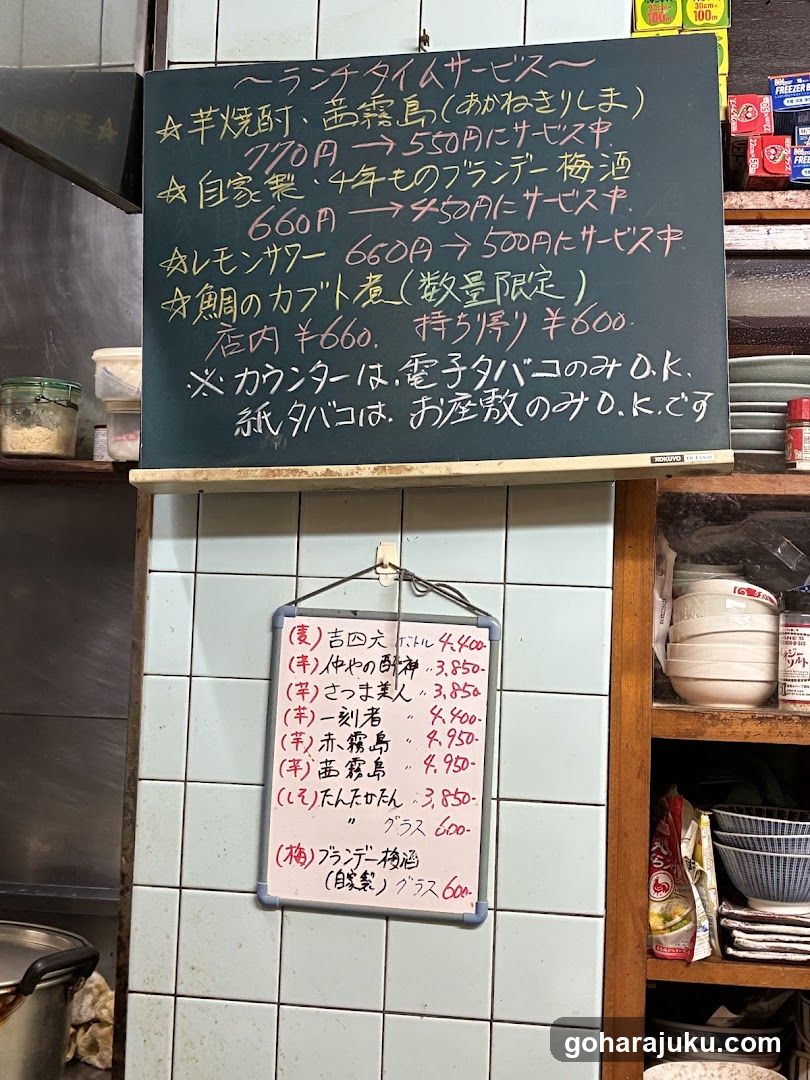 ～ランチタイムサービス～
☆芋焼酎・茜霧島(あかねきりしま)
770円→550円にサービス中.
☆自家製・4年ものブランデー梅酒
660円→450円にサービス中.
☆レモンサワー 660円→500円にサービス中.
☆鯛のカブト煮(数量限定)
店内 ¥660. 持ち帰り ¥600.
※カウンターは、電子タバコのみO.K.
紙タバコは、お座敷のみO.K.です
KOKUYO
(麦)吉四六 ボトル 4,400-
(芋)仲やの酎神 〃 3,850-
(芋)さつま美人 〃 3,850
(芋)一刻者 〃 4,400-
(芋)赤霧島 〃 4,950-
(芋)茜霧島 〃 4,950-
(しそ)たんたかたん 〃 3,850-
〃 グラス 600-
(梅)ブランデー梅酒
(自家製) グラス 600-
30cm×
100m
FREEZER
goharajuku.com